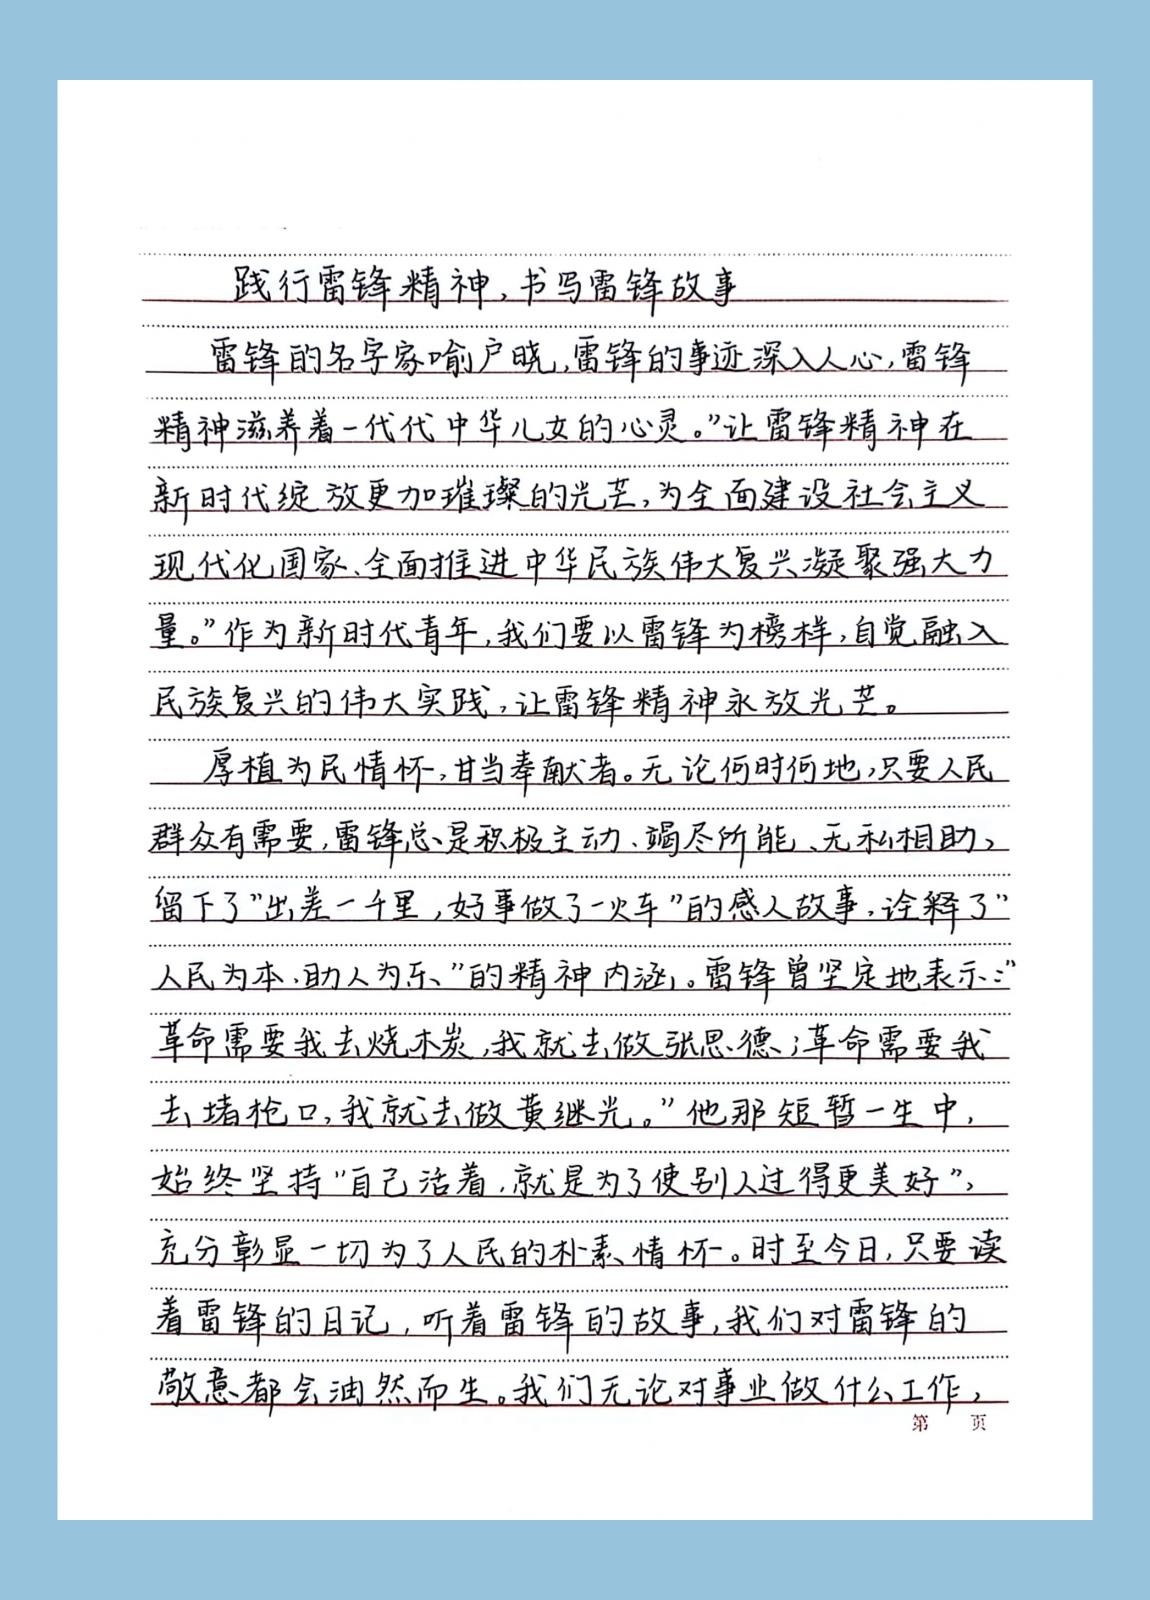 践行雷锋精神，书写雷锋故事
雷锋的名字家喻户晓，雷锋的事迹深入人心，雷锋
精神滋养着一代代中华儿女的心灵。”让雷锋精神在
新时代绽放更加璀璨的光芒，为全面建设社会主义
现代化国家、全面推进中华民族伟大复兴凝聚强大力
量。”作为新时代青年，我们要以雷锋为榜样，自觉融入
民族复兴的伟大实践，让雷锋精神永放光芒。
厚植为民情怀，甘当奉献者。无论何时何地，只要人民
群众有需要，雷锋总是积极主动、竭尽所能、无私相助，
留下了”出差一千里，好事做了一火车”的感人故事，诠释了”
人民为本、助人为乐”的精神内涵。雷锋曾坚定地表示：”
革命需要我去烧木炭，我就去做张思德；革命需要我
去堵枪口，我就去做黄继光。”他那短暂一生中，
始终坚持”自己活着，就是为了使别人过得更美好”，
充分彰显一切为了人民的朴素情怀。时至今日，只要读
着雷锋的日记，听着雷锋的故事，我们对雷锋的
敬意都会油然而生。我们无论对事业做什么工作，
第 页